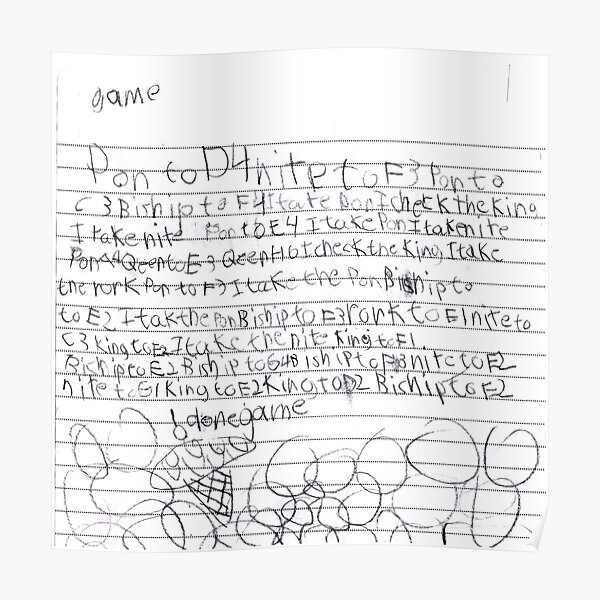 game
Pon to D4 nite to F3 Pon to
C3 Biship to F4 I tate Pon I check the King
I take nite Pon to E4 I take Pon I take nite
Pon A4 Qeen to E3 Qeen H4 I check the King I take
the rork Pon to F3 I take the Pon Biship to
to E2 I tak the Pon Biship to F3 rark to E1 nite to
C3 King to E2 I take the nite King to E1.
Biship to E2 Biship to G4 Biship to F3 nite to E2
nite to G1 King to E2 King to D2 Biship to E2
donegame